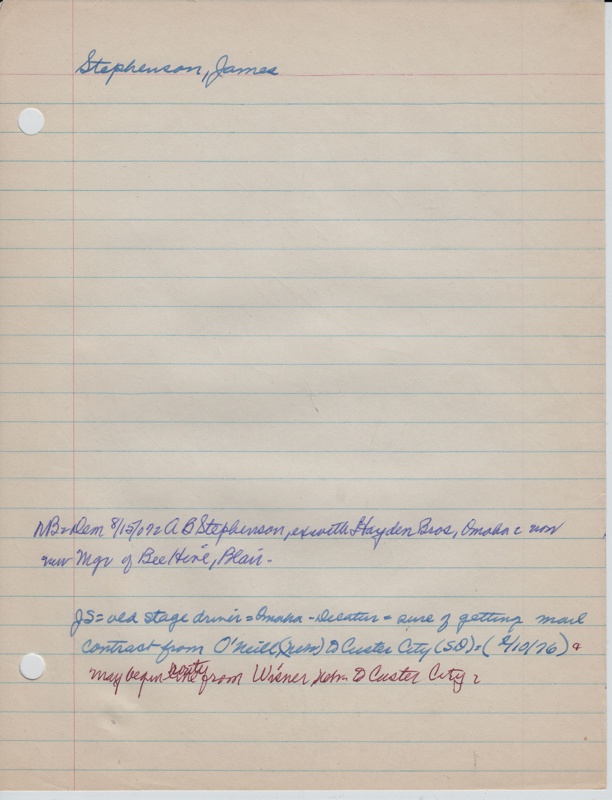 Stephenson, James
NB=Dem 8/15/07= A B Stephenson, ex with Hayden Bros, Omaha = now
new Mgr of Bee Hive, Blair -
JS= old stage driver = Omaha - Decatur = sure of getting mail
contract from O'Neill (Nebr) to Custer City (SD) = ( /10/76) &
may begin route from Wisner Nebr. to Custer City =